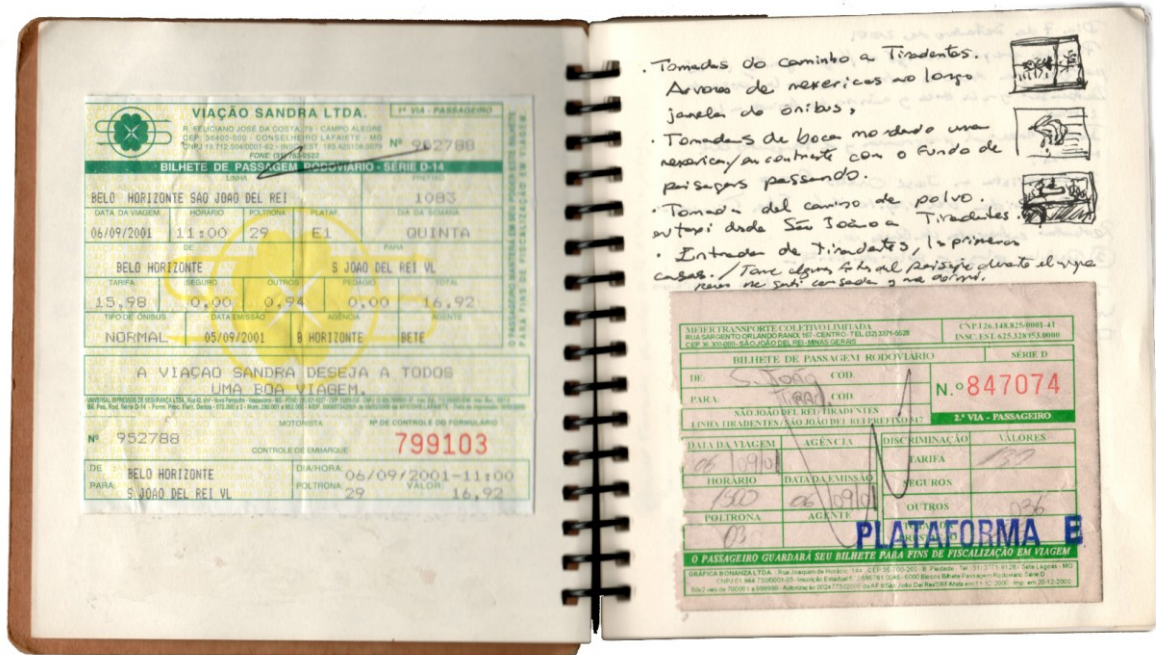 VIAÇÃO SANDRA LTDA.
1ª VIA - PASSAGEIRO
R. FELICIANO JOSÉ DA COSTA, 75 - CAMPO ALEGRE
CEP: 36400-000 - CONSELHEIRO LAFAIETE - MG
Nº 952788
BILHETE DE PASSAGEM RODOVIÁRIO - SÉRIE D-14
LINHA PREFIXO
BELO HORIZONTE SAO JOAO DEL REI 1083
DATA DA VIAGEM HORÁRIO POLTRONA PLATAF. DIA DA SEMANA
06/09/2001 11:00 29 E1 QUINTA
DE PARA
BELO HORIZONTE S JOAO DEL REI VL
TARIFA SEGURO OUTROS PEDÁGIO TOTAL
15.98 0.00 0.94 0.00 16.92
TIPO DE ÔNIBUS DATA EMISSÃO AGÊNCIA AGENTE
NORMAL 05/09/2001 B HORIZONTE BETE
A VIAÇAO SANDRA DESEJA A TODOS
UMA BOA VIAGEM.
O PASSAGEIRO MANTERÁ EM SEU PODER ESTE BILHETE
PARA FINS DE FISCALIZAÇÃO EM VIAGEM.
MOTORISTA Nº DE CONTROLE DO FORMULÁRIO
Nº 952788 799103
CONTROLE DE EMBARQUE
DE BELO HORIZONTE DIA/HORA: 06/09/2001-11:00
PARA: S JOAO DEL REI VL POLTRONA: 29 VALOR: 16.92
· Tomadas do caminho a Tiradentes.
Arvores de mexericas ao longo
janelas do ônibus,
· Tomadas de boca mordado uma
mexerica/en contraste com o fundo de
paisagens passando.
· Tomada del camino de polvo.
en taxi desde São João a Tiradentes.
· Entrada de Tiradentes, las primeras
casas. / Tome algunas fotos del paisaje durante el viaje
pero me senti cansada y me dormi.
MEIER TRANSPORTE COLETIVO LIMITADA
RUA SARGENTO ORLANDO RANDI, 167 - CENTRO - TEL. (32) 3371-5528
CEP 36.300-000 - SÃO JOÃO DEL REI - MINAS GERAIS
CNPJ.26.148.825/0001-41
INSC. EST. 625.328153.0000
BILHETE DE PASSAGEM RODOVIÁRIO SÉRIE D
DE: S. João COD.
PARA: TIRAD. COD
N.º 847074
SÃO JOÃO DEL REI/TIRADENTES
LINHA TIRADENTES/SÃO JOÃO DEL REI PREFIXO 517
2.ª VIA - PASSAGEIRO
DATA DA VIAGEM AGÊNCIA DISCRIMINAÇÃO VALORES
06/09/01 TARIFA 130
HORÁRIO DATA DA EMISSÃO SEGUROS
06 09/01
POLTRONA AGENTE OUTROS 036
03
PLATAFORMA B
O PASSAGEIRO GUARDARÁ SEU BILHETE PARA FINS DE FISCALIZAÇÃO EM VIAGEM
GRÁFICA BONANZA LTDA.